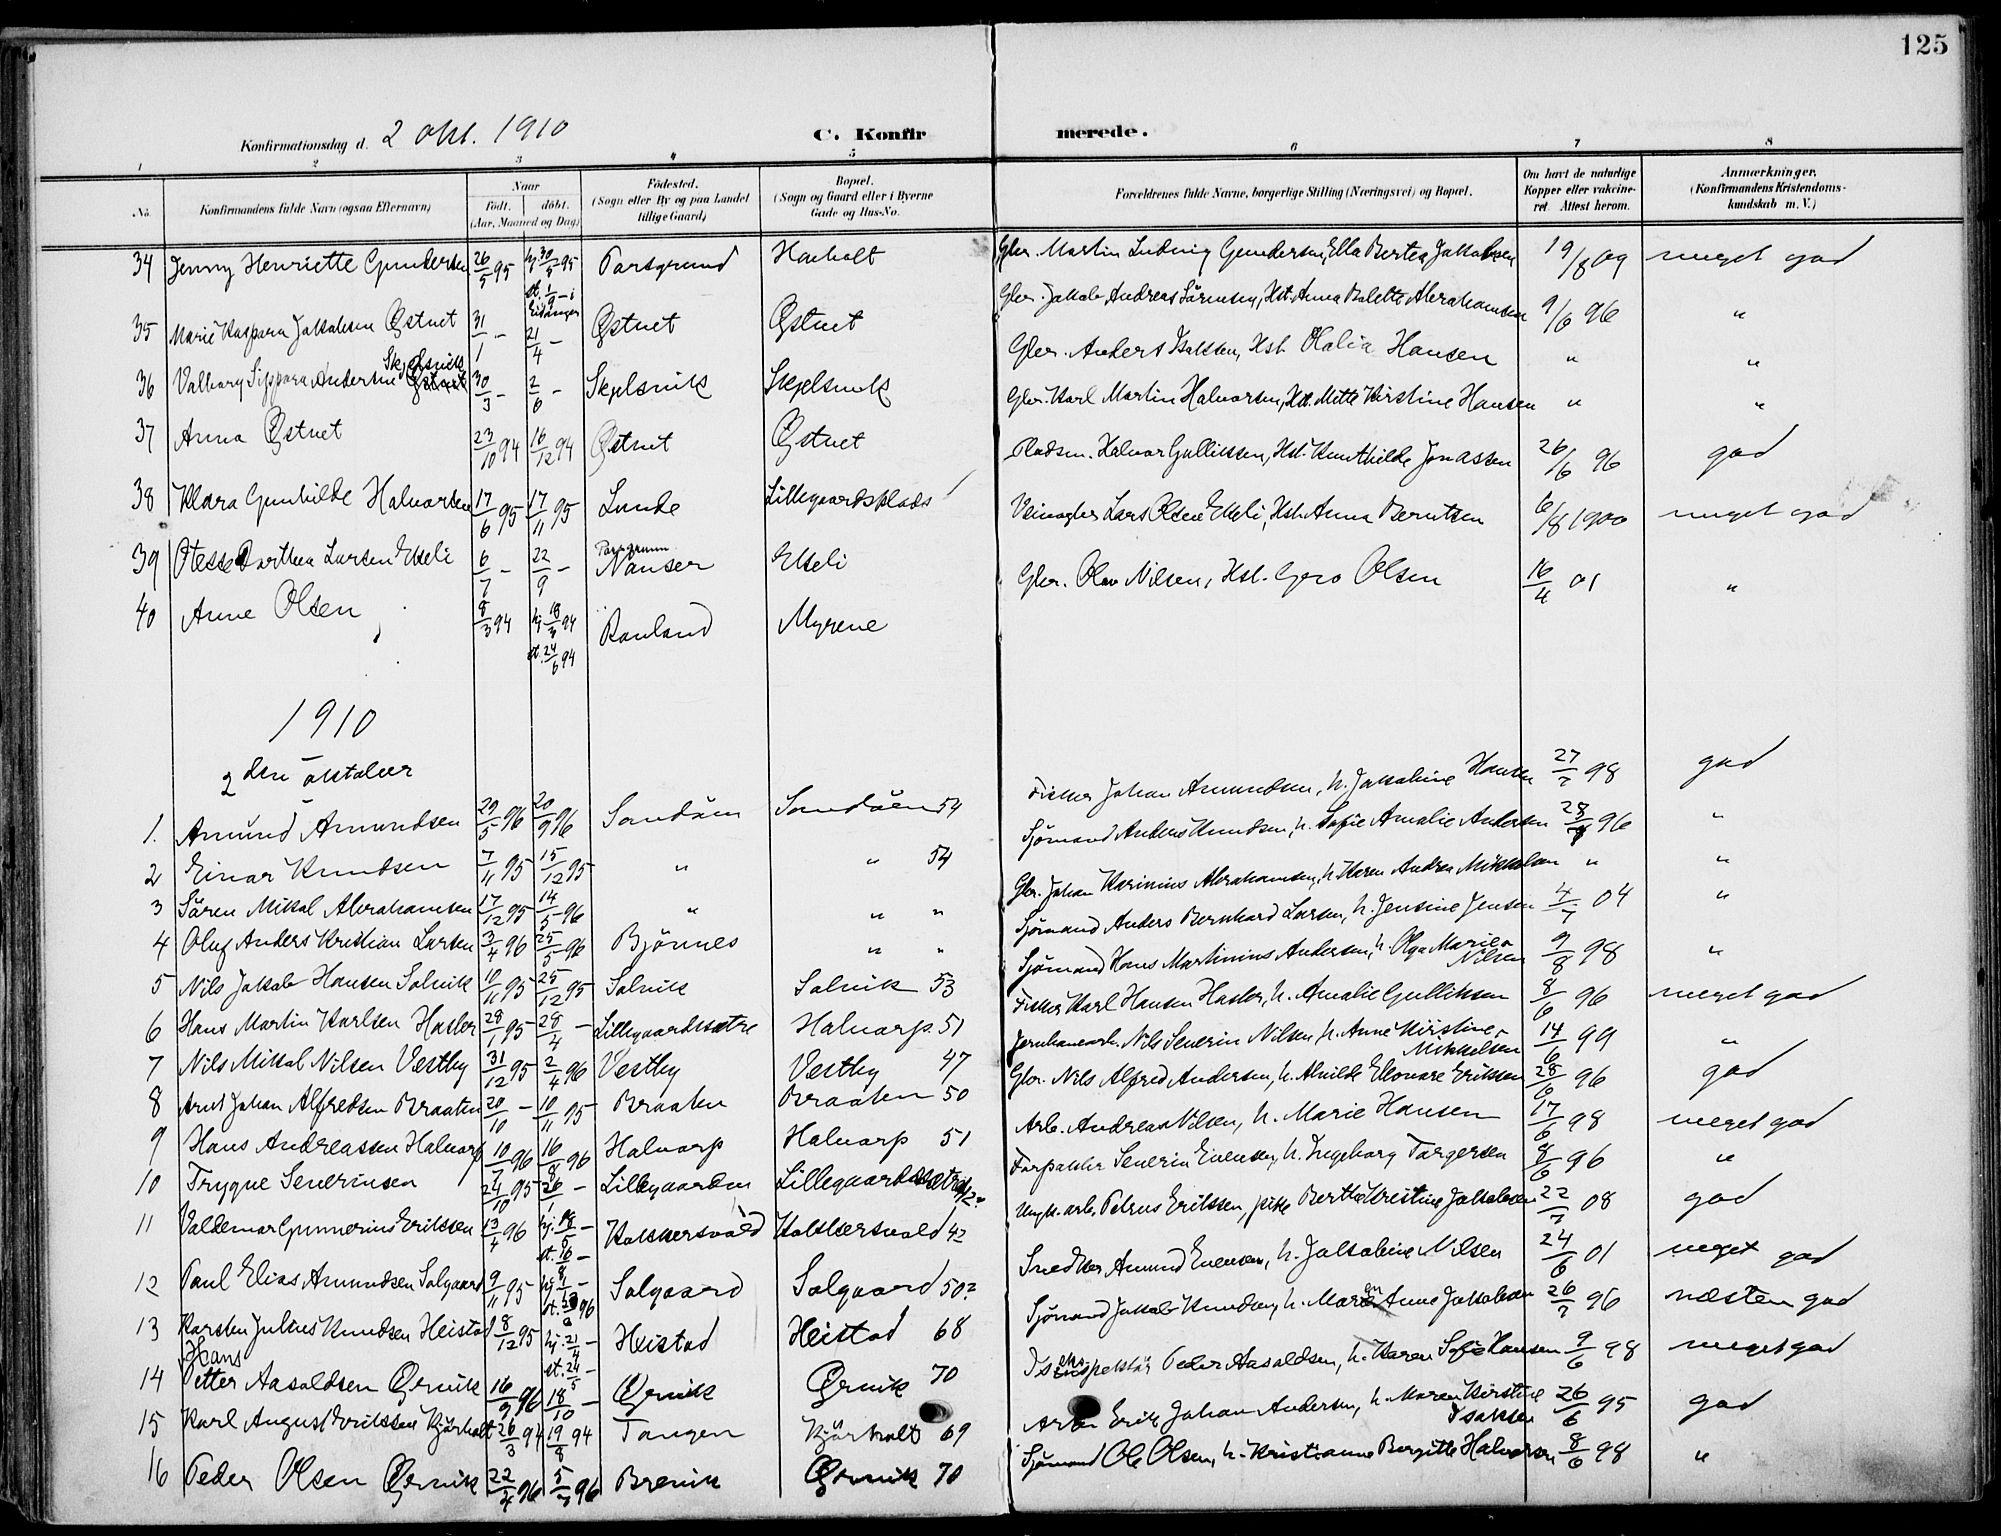 125
Konfirmationsdag d. 2 okt. 1910 C. Konfirmerede.
1 2 3 4 5 6 7 8
No. Konfirmandens fulde Navn (ogsaa Efternavn) Naar födt. döbt. (Aar, Maaned og Dag) Födested. (Sogn eller By og paa Landet tillige Gaard) Bopæl. (Sogn og Gaard eller i Byerne Gade og Hus-No. Forældrenes fulde Navne, borgerlige Stilling (Næringsvei) og Bopæl. Om havt de naturlige Kopper eller vakcineret. Attest herom. Anmærkninger. (Konfirmandens Kristendomskundskab m. V.)
34 Jenny Henriette Gundersen 26/5 95 hj 30/5 95 st. 1/9 - i Eidanger Porsgrund Havholt Gbr. Martin Ludvig Gundersen, Ella Bertea Jakobsen 19/8 09 meget god
35 Marie Kaspara Jakobsen Østvet 31/1 - 21/4 - Østvet Østvet Gbr. Jakob Andreas Sörensen, Hst. Anna Bolette Abrahamsen 9/6 96 "
36 Valborg Sigpara Andersen Skjelsvik 30/3 - 2/6 - Skjelsvik Skjelsvik Gbr. Anders Isaksen, Hst. Olalia Hansen " "
37 Anna Østvet 23/10 94 16/12 94 Østvet Østvet Gbr. Karl Martin Halvorsen, Hst. Mette Kirstine Hansen " "
38 Klara Gunhilde Halvorsen 17/6 95 17/11 95 Lunde Lillegaardsplads Pladsm. Halvor Gulliksen, Hst. Gunhilde Jonassen 26/6 96 god
39 Dorthea Larsen Elseli 6/7 - 22/9 - Porsgrunn Nanset Elseli Lars Olsen Elseli, Hst. Anna Berntsen 6/8 1900 meget god
40 Anne Olsen 8/3 94 hj 18/3 94 st. 24/6 94 Rauland Myrene Gbr. Olav Nilsen, Hst. Gero Olsen 16/4 01 "
1910
2den oktober
1. Amund Amundsen 29/5 96 20/9 96 Sandöen Sandöen 54 Fisker Johan Amundsen, h. Jakobine Hansen 27/7 98 god
2 Einar Knudsen 7/11 95 15/12 95 " " 54 Sjømand Anders Knudsen, h. Sofie Amalie Andersen 28/ 96 "
3 Sören Mikal Abrahamsen 17/12 95 14/5 96 " " " Gbr. Johan Karinius Abrahamsen, h. Karen Andrea Mikkelsen " "
4 Oluf Anders Kristian Larsen 3/4 96 25/5 96 Bjönnes " " Sjømand Anders Bernhard Larsen, h. Jensine Jensen 4/7 04 "
5 Nils Jakob Hansen Solvik 10/11 95 25/12 95 Solvik Solvik 53 Sjømand Hans Martinius Andersen, h. Olga Marie Nilsen 9/8 98 "
6 Hans Martin Karlsen Hasler 28/1 95 28/4 - Lillegaardssætre Halvarp. 51 Fisker Karl Hansen Hasler, h. Amalie Gulliksen 8/6 96 meget god
7 Nils Mikal Nilsen Vestby 31/12 95 2/4 96 Vestby Vestby 47 Jernbanearb. Nils Severin Nilsen, h. Anne Kirstine Mikkelsen 14/6 99 "
8 Arnt Johan Alfredsen Braaten 20/10 - 10/11 95 Braaten Braaten 50 Gbr. Nils Alfred Andersen, h. Alvilde Eleonore Eriksen 28/6 96 god
9 Hans Andreassen Halvarp 10/7 96 16/8 96 Halvarp Halvarp 51 Arb. Andreas Nilsen, h. Marie Hansen 17/6 98 meget god
10 Trygve Severinsen 24/10 95 26/1 - Lillegaarden Lillegaardssætre 42 Forpakter Severin Evensen, h. Ingeborg Torgersen 8/6 96 "
11 Valdemar Gunnerius Eriksen 13/4 96 hj. 18/5 - st. 16/8 - Kokkersvold Kokkersvold 42 Ungk. arb. Petrus Eriksen, pike Berthe Kirstine Jakobsen 22/7 08 god
12 Paul Elias Amundsen Solgaard 9/11 95 Solgaard Solgaard 50 Snedker Amund Evensen, h. Jakobine Nilsen 24/6 01 meget god
13 Karsten Julius Knudsen Heistad 8/12 95 hj. 21/4 - st. 24/5 - Heistad Heistad 68 Sjømand Jakob Knudsen, h. Maren Anne Jakobsen 26/7 96 næsten god
14 Hans Petter Aasoldsen Ørvik 16/9 96 18/10 - Ørvik Ørvik 70 Peder Aasoldsen, h. Karen Sofie Hansen 9/6 98 meget god
15 Karl August Eriksen Kjörholt 26/3 94 19/8 94 Tangen Kjörholt 69 Arb. Erik Johan Andersen, h. Maren Kirstine Isaksen 26/6 95 god
16 Peder Olsen Ørvik 22/4 96 5/7 96 Brevik Ørvik 70 Sjømand Ole Olsen, h. Kristianne Birgitte Halvorsen 8/6 98 "